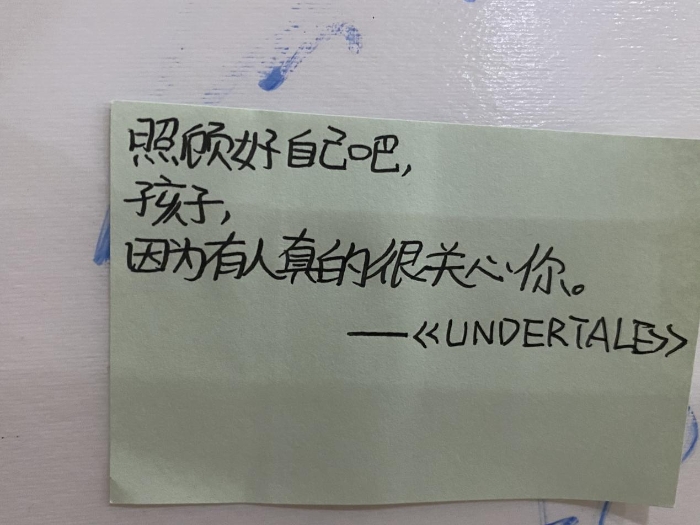 照顾好自己吧,
孩子,
因为有人真的很关心你。
——《UNDERTALE》